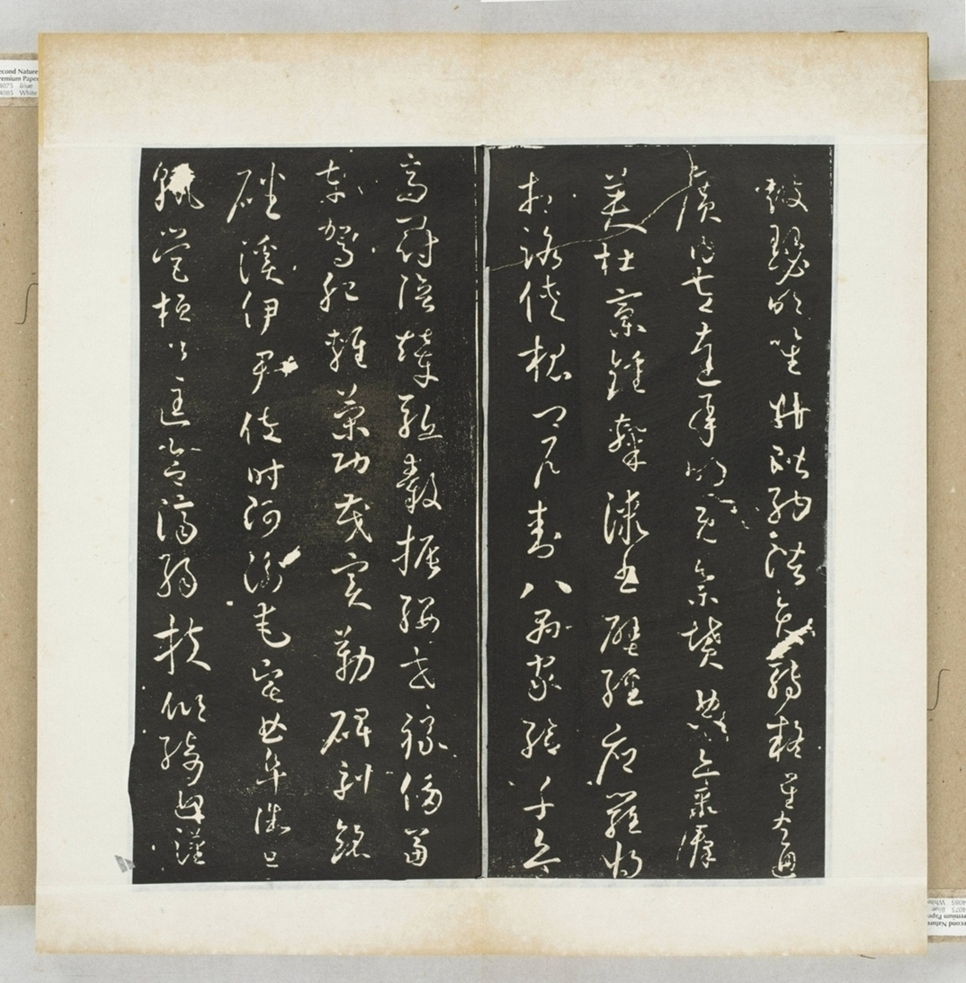 鼓瑟吹笙升階納陛弁轉疑星右通
廣內左達承明既集墳典亦聚群
英杜稾鍾隸漆書壁經府羅將
相路俠槐卿戶封八縣家給千兵
高冠陪輦驅轂振纓世祿侈富
車駕肥輕策功茂實勒碑刻銘
磻溪伊尹佐時阿衡奄宅曲阜微旦
孰營桓公匡合濟弱扶傾綺迴漢
econd Nature
remium Paper
4075 Blue
4085 White